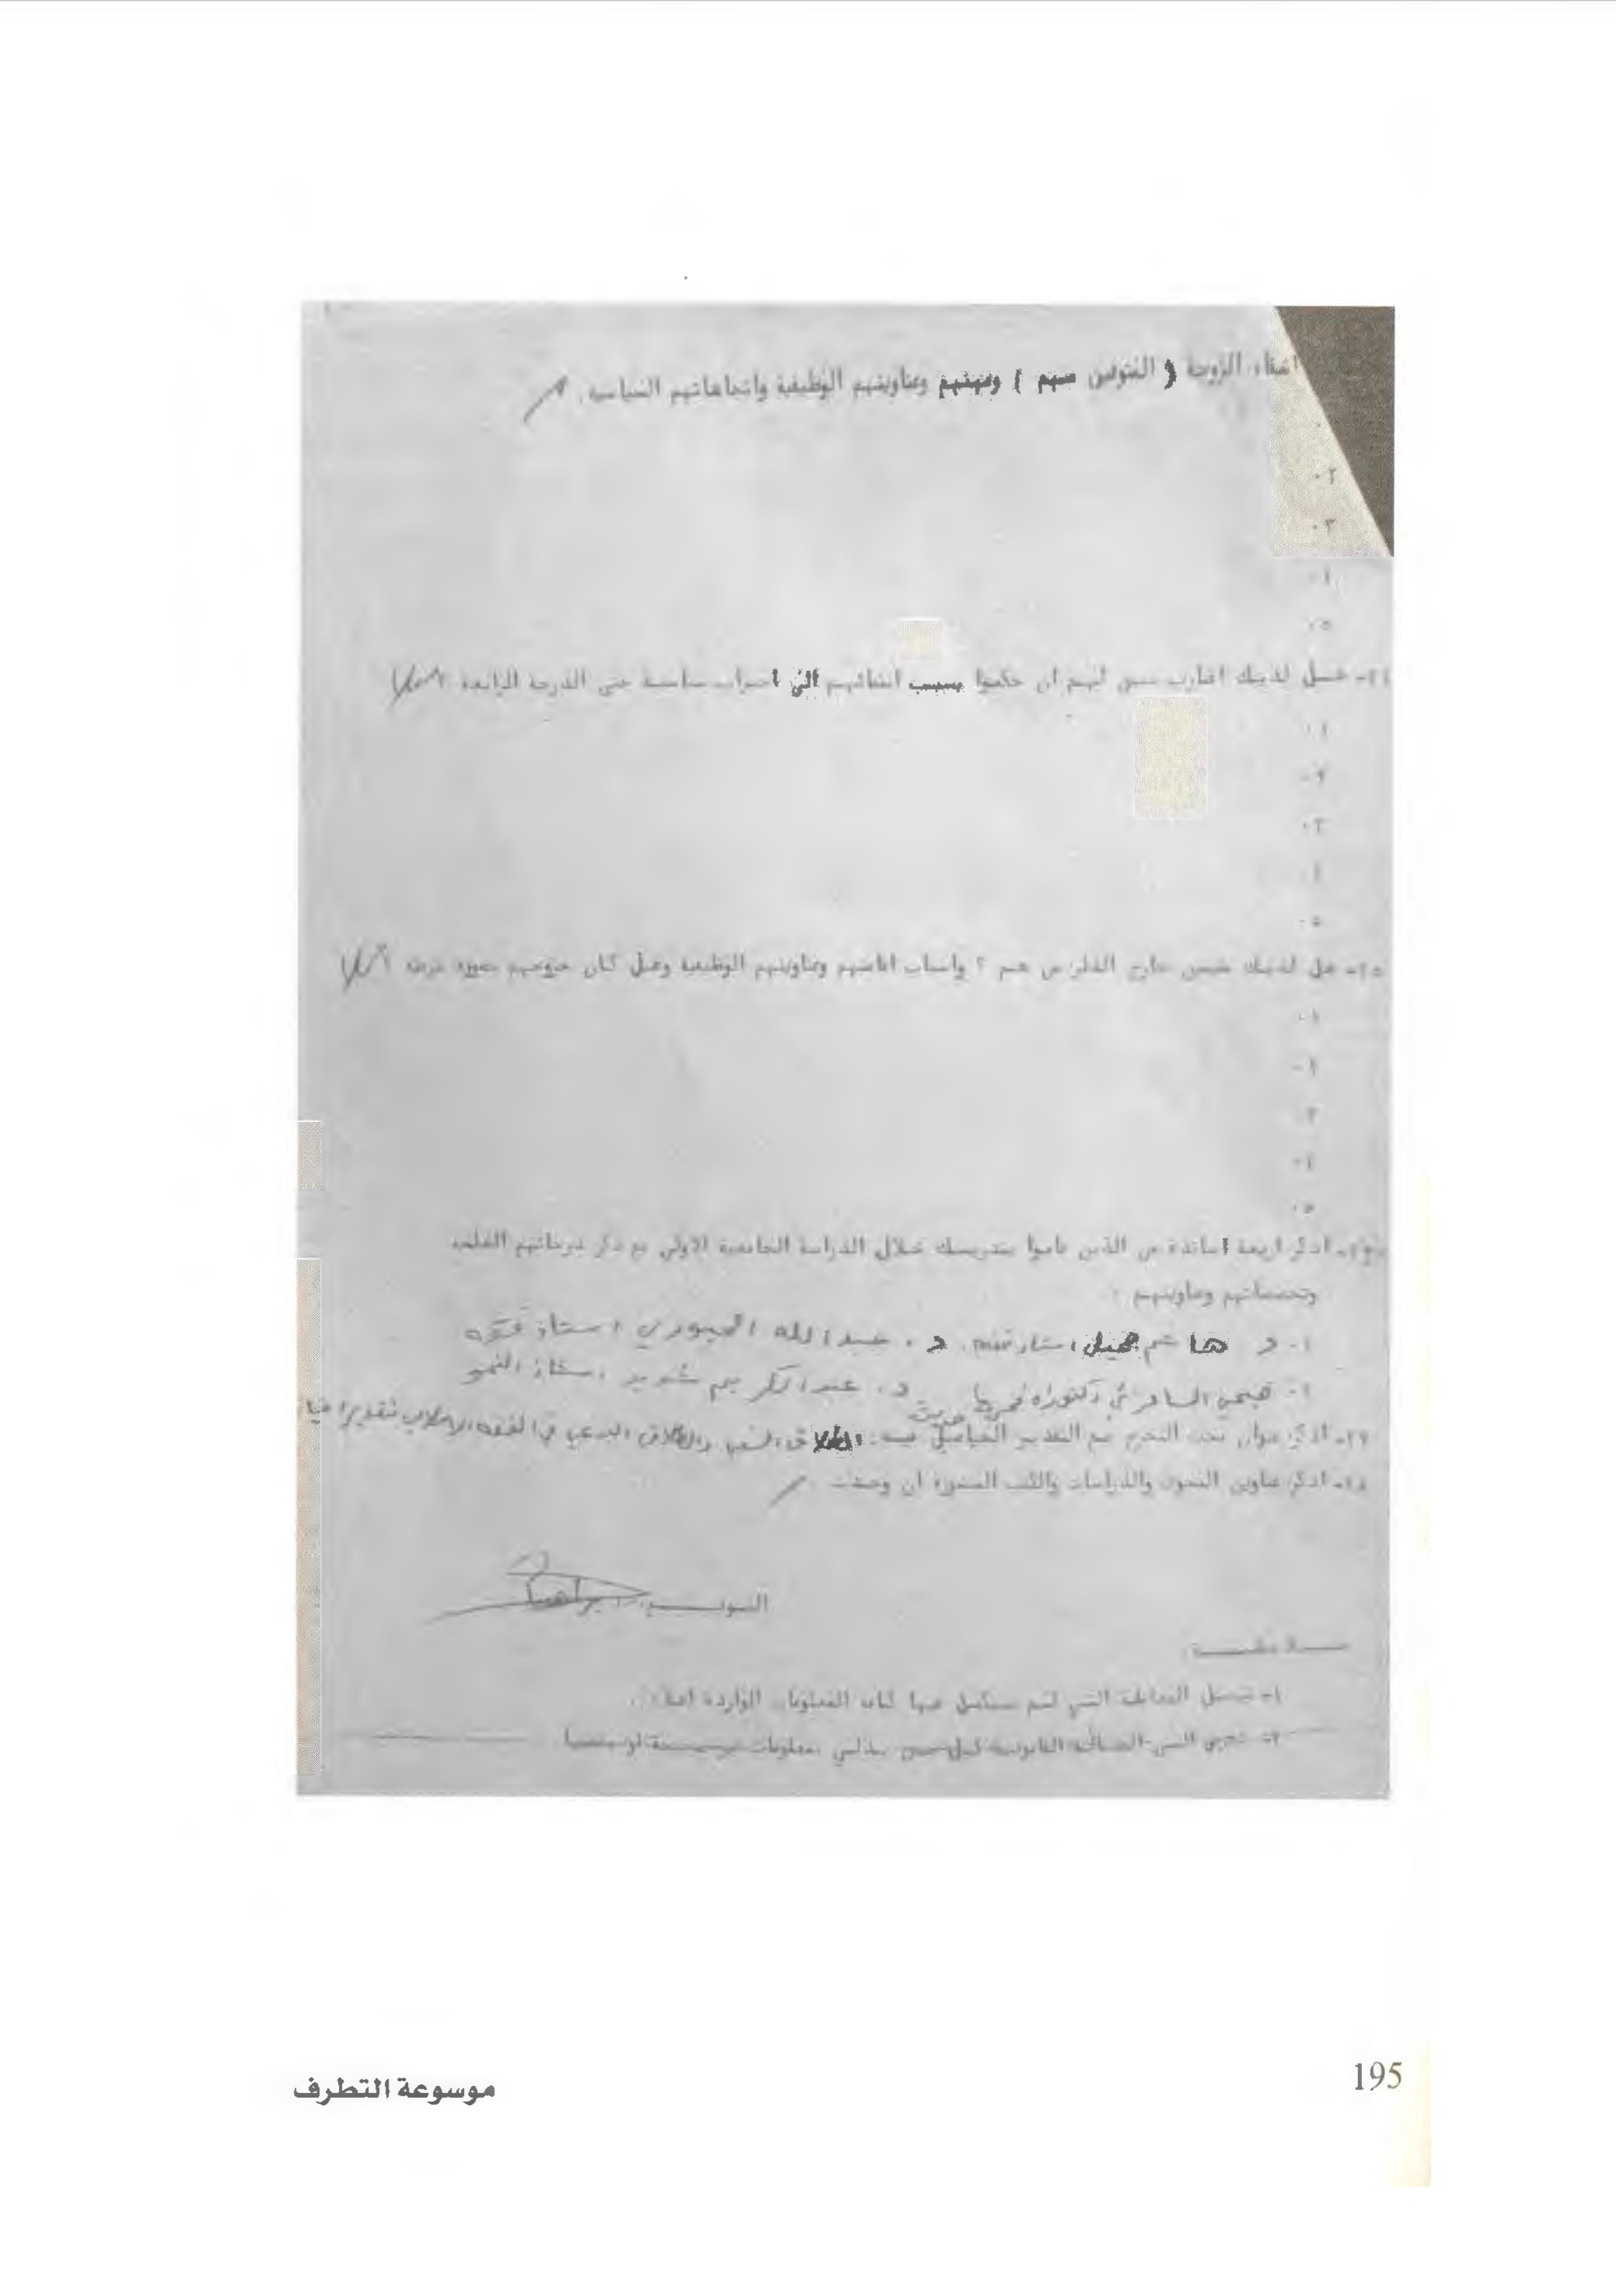 اشقاء الزوجة ( المتوفين منهم ) ومهنهم وعناوينهم الوظيفية واتجاهاتهم السياسية .
٠٢
٠٣
٠٤
٠٥
٢٤- هل لديك اقارب سبق لهم ان حكموا بسبب انتمائهم الى احزاب سياسية حتى الدرجة الرابعة كلا
٠١
٠٢
٠٣
٠٤
٠٥
٢٥- هل لديك خارج القطر من هم ؟ واسباب اقامتهم وعناوينهم الوظيفية وهل كان خروجهم بصورة كلا
٠١
٠٢
٠٣
٠٤
٠٥
٢٦- اذكر اربعة اساتذة من الذين قاموا بتدريسك خلال الدراسة الجامعية الاولى مع ذكر درجاتهم العلمية
وتخصصاتهم وعناوينهم :
٠١ د هاشم جميل استاذ فقه . د . عبد الله الجبوري استاذ فقه
٠٢ صبحي السامرائي حديث د . عبد الكريم استاذ النحو
٢٧- اذكر عنوان بحث التخرج مع التقدير الحاصل فيه . الطلاق السني والطلاق البدعي في الفقه الاسلامي
٢٨- اذكر عناوين البحوث والدراسات والكتب المنشورة ان وجدت .
التوقيع
ملاحظة
١- تهمل المعاملة التي لم تستكمل فيها كافة المعلومات الواردة اعلاه .
موسوعة التطرف
195